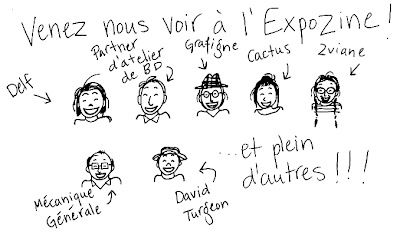 Venez nous voir à l'Expozine!
Delf
Partner
d'atelier
de BD
Grafigne
Cactus
Zviane
Mécanique
Générale
David
Turgeon
...et plein
d'autres!!!